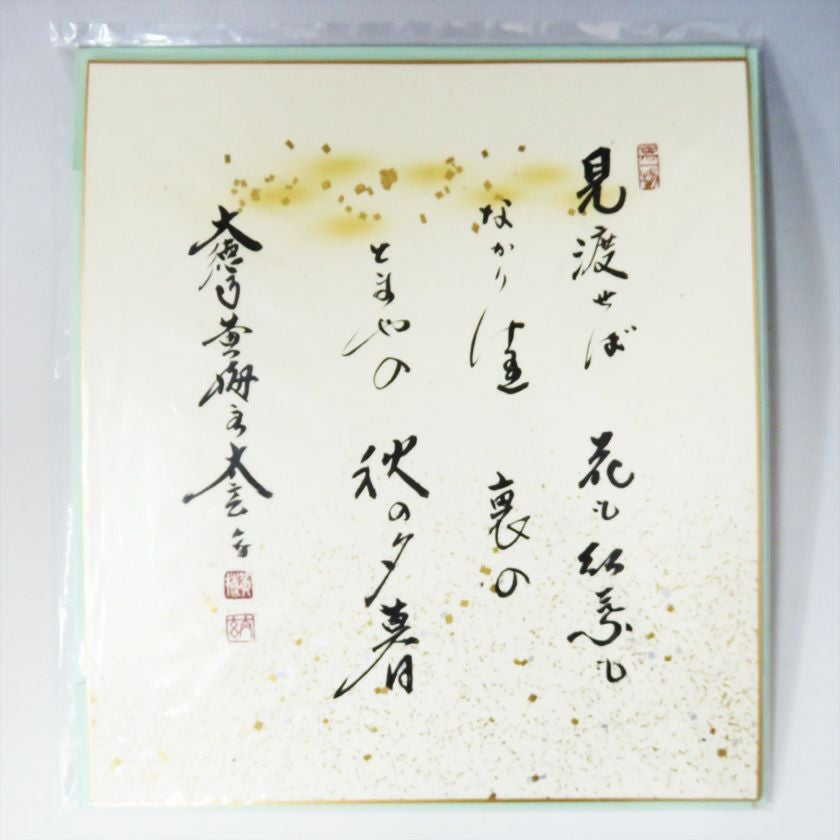 見渡せば 花も紅葉も
なかりけ里 裏の
とま也の 秋の夕暮
大徳 黄梅 太玄